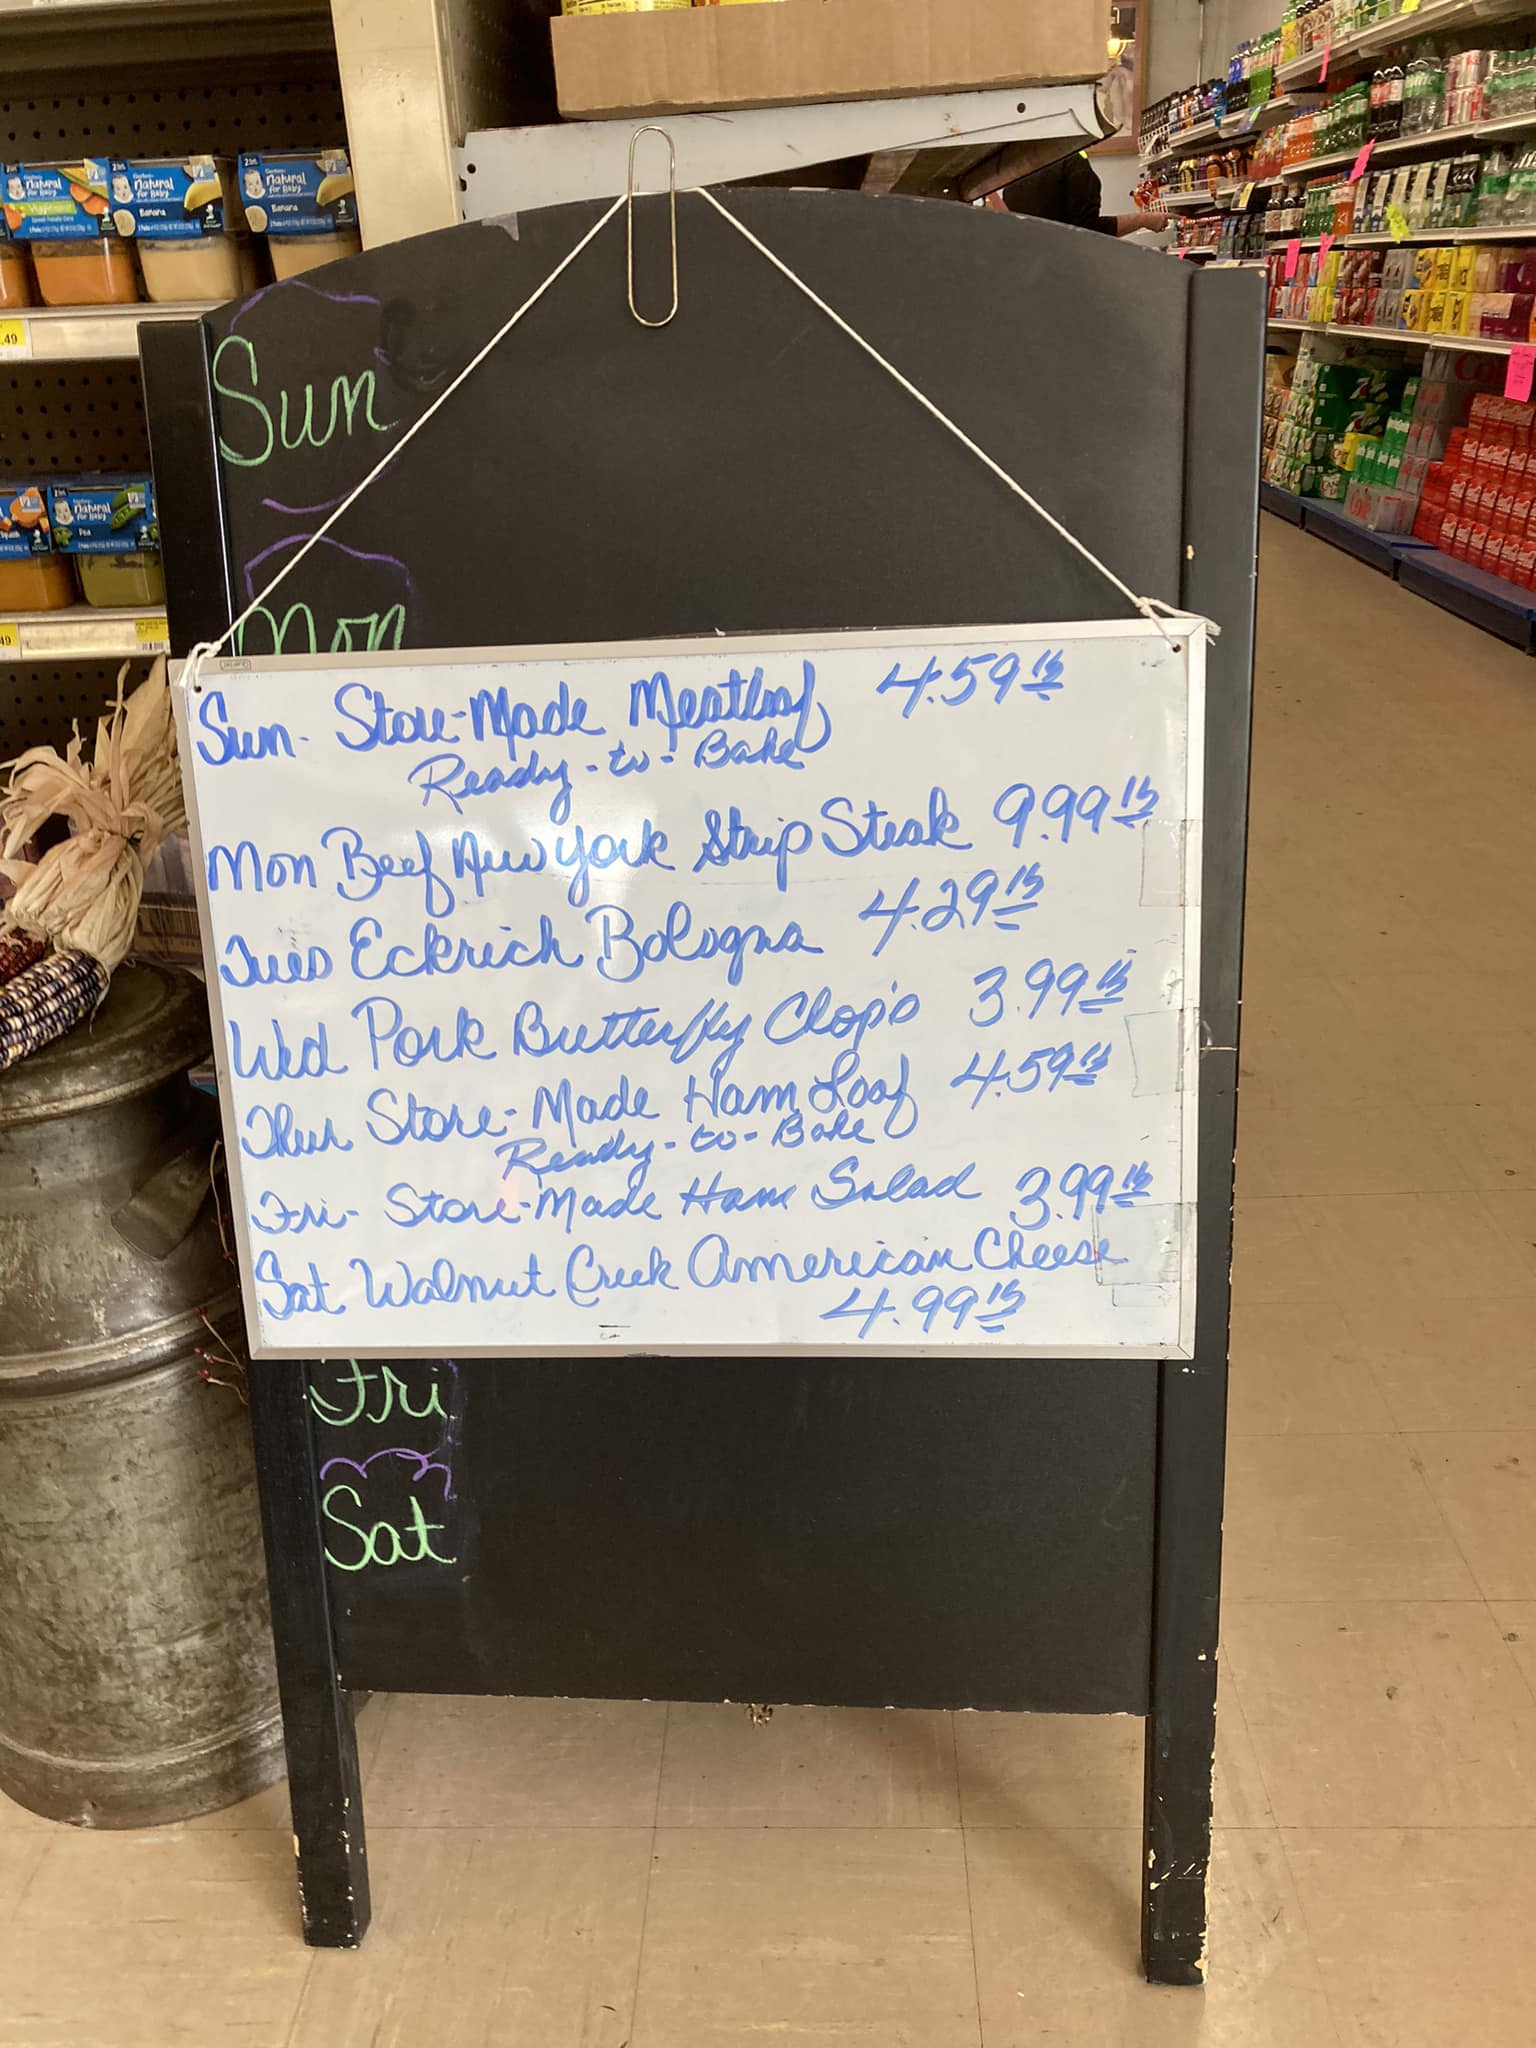 Sun
Mon
Sun- Store-Made Meatloaf 4.59 lb
Ready-to-Bake
Mon Beef New York Strip Steak 9.99 lb
Tues Eckrich Bologna 4.29 lb
Wed Pork Butterfly Chop's 3.99 lb
Thur Store-Made Ham Loaf 4.59 lb
Ready-to-Bake
Fri- Store-Made Ham Salad 3.99 lb
Sat Walnut Creek American Cheese
4.99 lb
Fri
Sat
Natural for Baby
Natural for Baby
Banana
Natural for Baby
Banana
.49
Natural for Baby
Pea
49